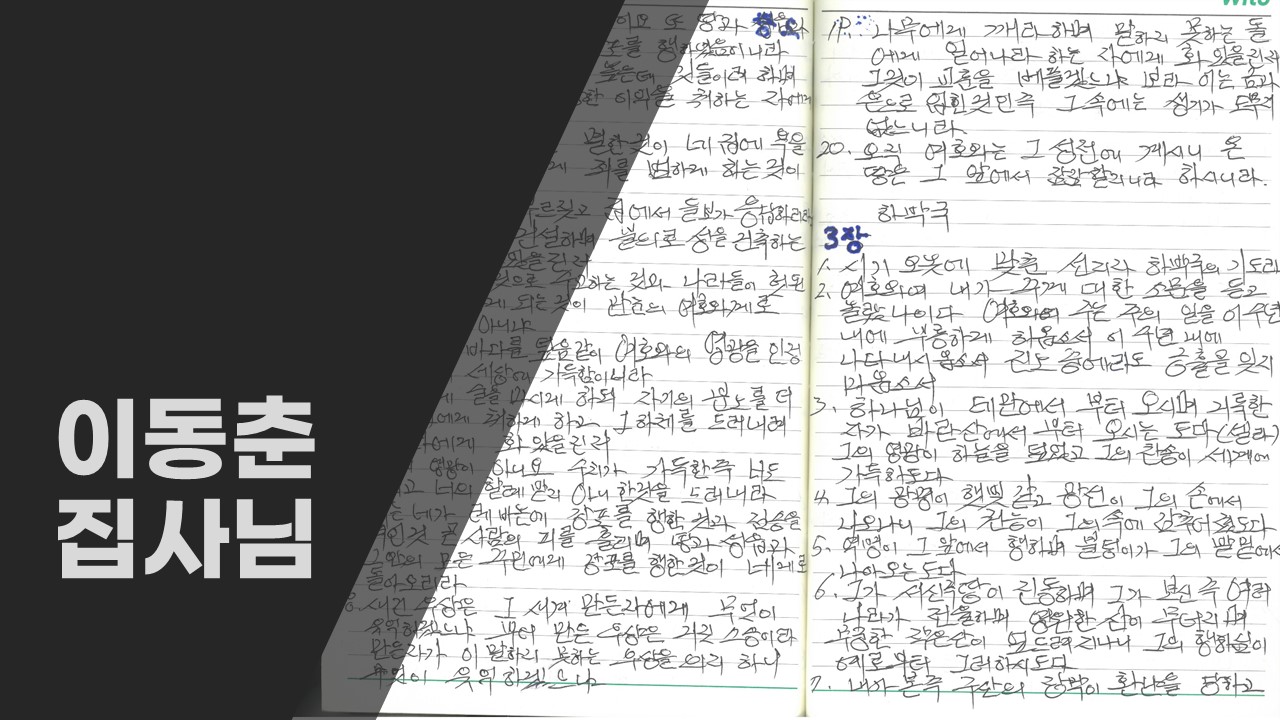 이동춘
집사님
조를 행하였음이니라
취하는 자에게
네 집에 욕을
죄를 범하게 하는 것이
집에서 들보가 응답하리라
건설하며 불의로 성을 건축하는
하는 것과 나라들이 헛된
되는 것이 만군의 여호와께로
아니냐
바다를 덮음같이 여호와의 영광을 인정
세상에 가득함이니라
술을 마시게 하되 자기의 분노를 더
취하게 하고 그 하체를 드러내려
화 있을진저
영광이 아니요 수치가 가득한즉 너도
너의 할례 받지 아니한것을 드러내라
네가 레바논에 강포를 행한 것과 짐승을
사람의 피를 흘리며 땅과 성읍과
모든 주민에게 강포를 행한것이 네게로
돌아오리라
새긴 우상은 그 새겨 만든자에게 무엇이
유익하겠느냐 부어 만든 우상은 거짓 스승이라
만든자가 이 말하지 못하는 우상을 의지 하니
무엇이 유익 하겠느냐
19. 나무에게 깨라 하며 말하지 못하는 돌
에게 일어나라 하는 자에게 화 있을진저
그것이 교훈을 베풀겠느냐 보라 이는 금과
은으로 입힌 것인즉 그 속에는 생기가 도무지
없느니라.
20. 오직 여호와는 그 성전에 계시니 온
땅은 그 앞에서 잠잠할지니라 하시니라.
하박국
3장
1. 시기오놋에 맞춘 선지자 하박국의 기도라
2. 여호와여 내가 주께 대한 소문을 듣고
놀랐나이다 여호와여 주는 주의 일을 이 수년
내에 부흥하게 하옵소서 이 수년 내에
나타내시옵소서 진노 중에라도 긍휼을 잊지
마옵소서
3. 하나님이 데만에서 부터 오시며 거룩한
자가 바란산에서 부터 오시는 도다 (셀라)
그의 영광이 하늘을 덮었고 그의 찬송이 세계에
가득하도다
4. 그의 광명이 햇빛 같고 광선이 그의 손에서
나오니 그의 권능이 그 속에 감추어졌도다
5. 역병이 그 앞에서 행하며 불덩이가 그의 발밑에서
나오는도다
6. 그가 서신즉 땅이 진동하며 그가 보신즉 여러
나라가 전율하며 영원한 산이 무너지며
무궁한 작은산이 엎드러지나니 그의 행하심이
예로부터 그러하시도다
7. 내가 본즉 구산의 장막이 환난을 당하고